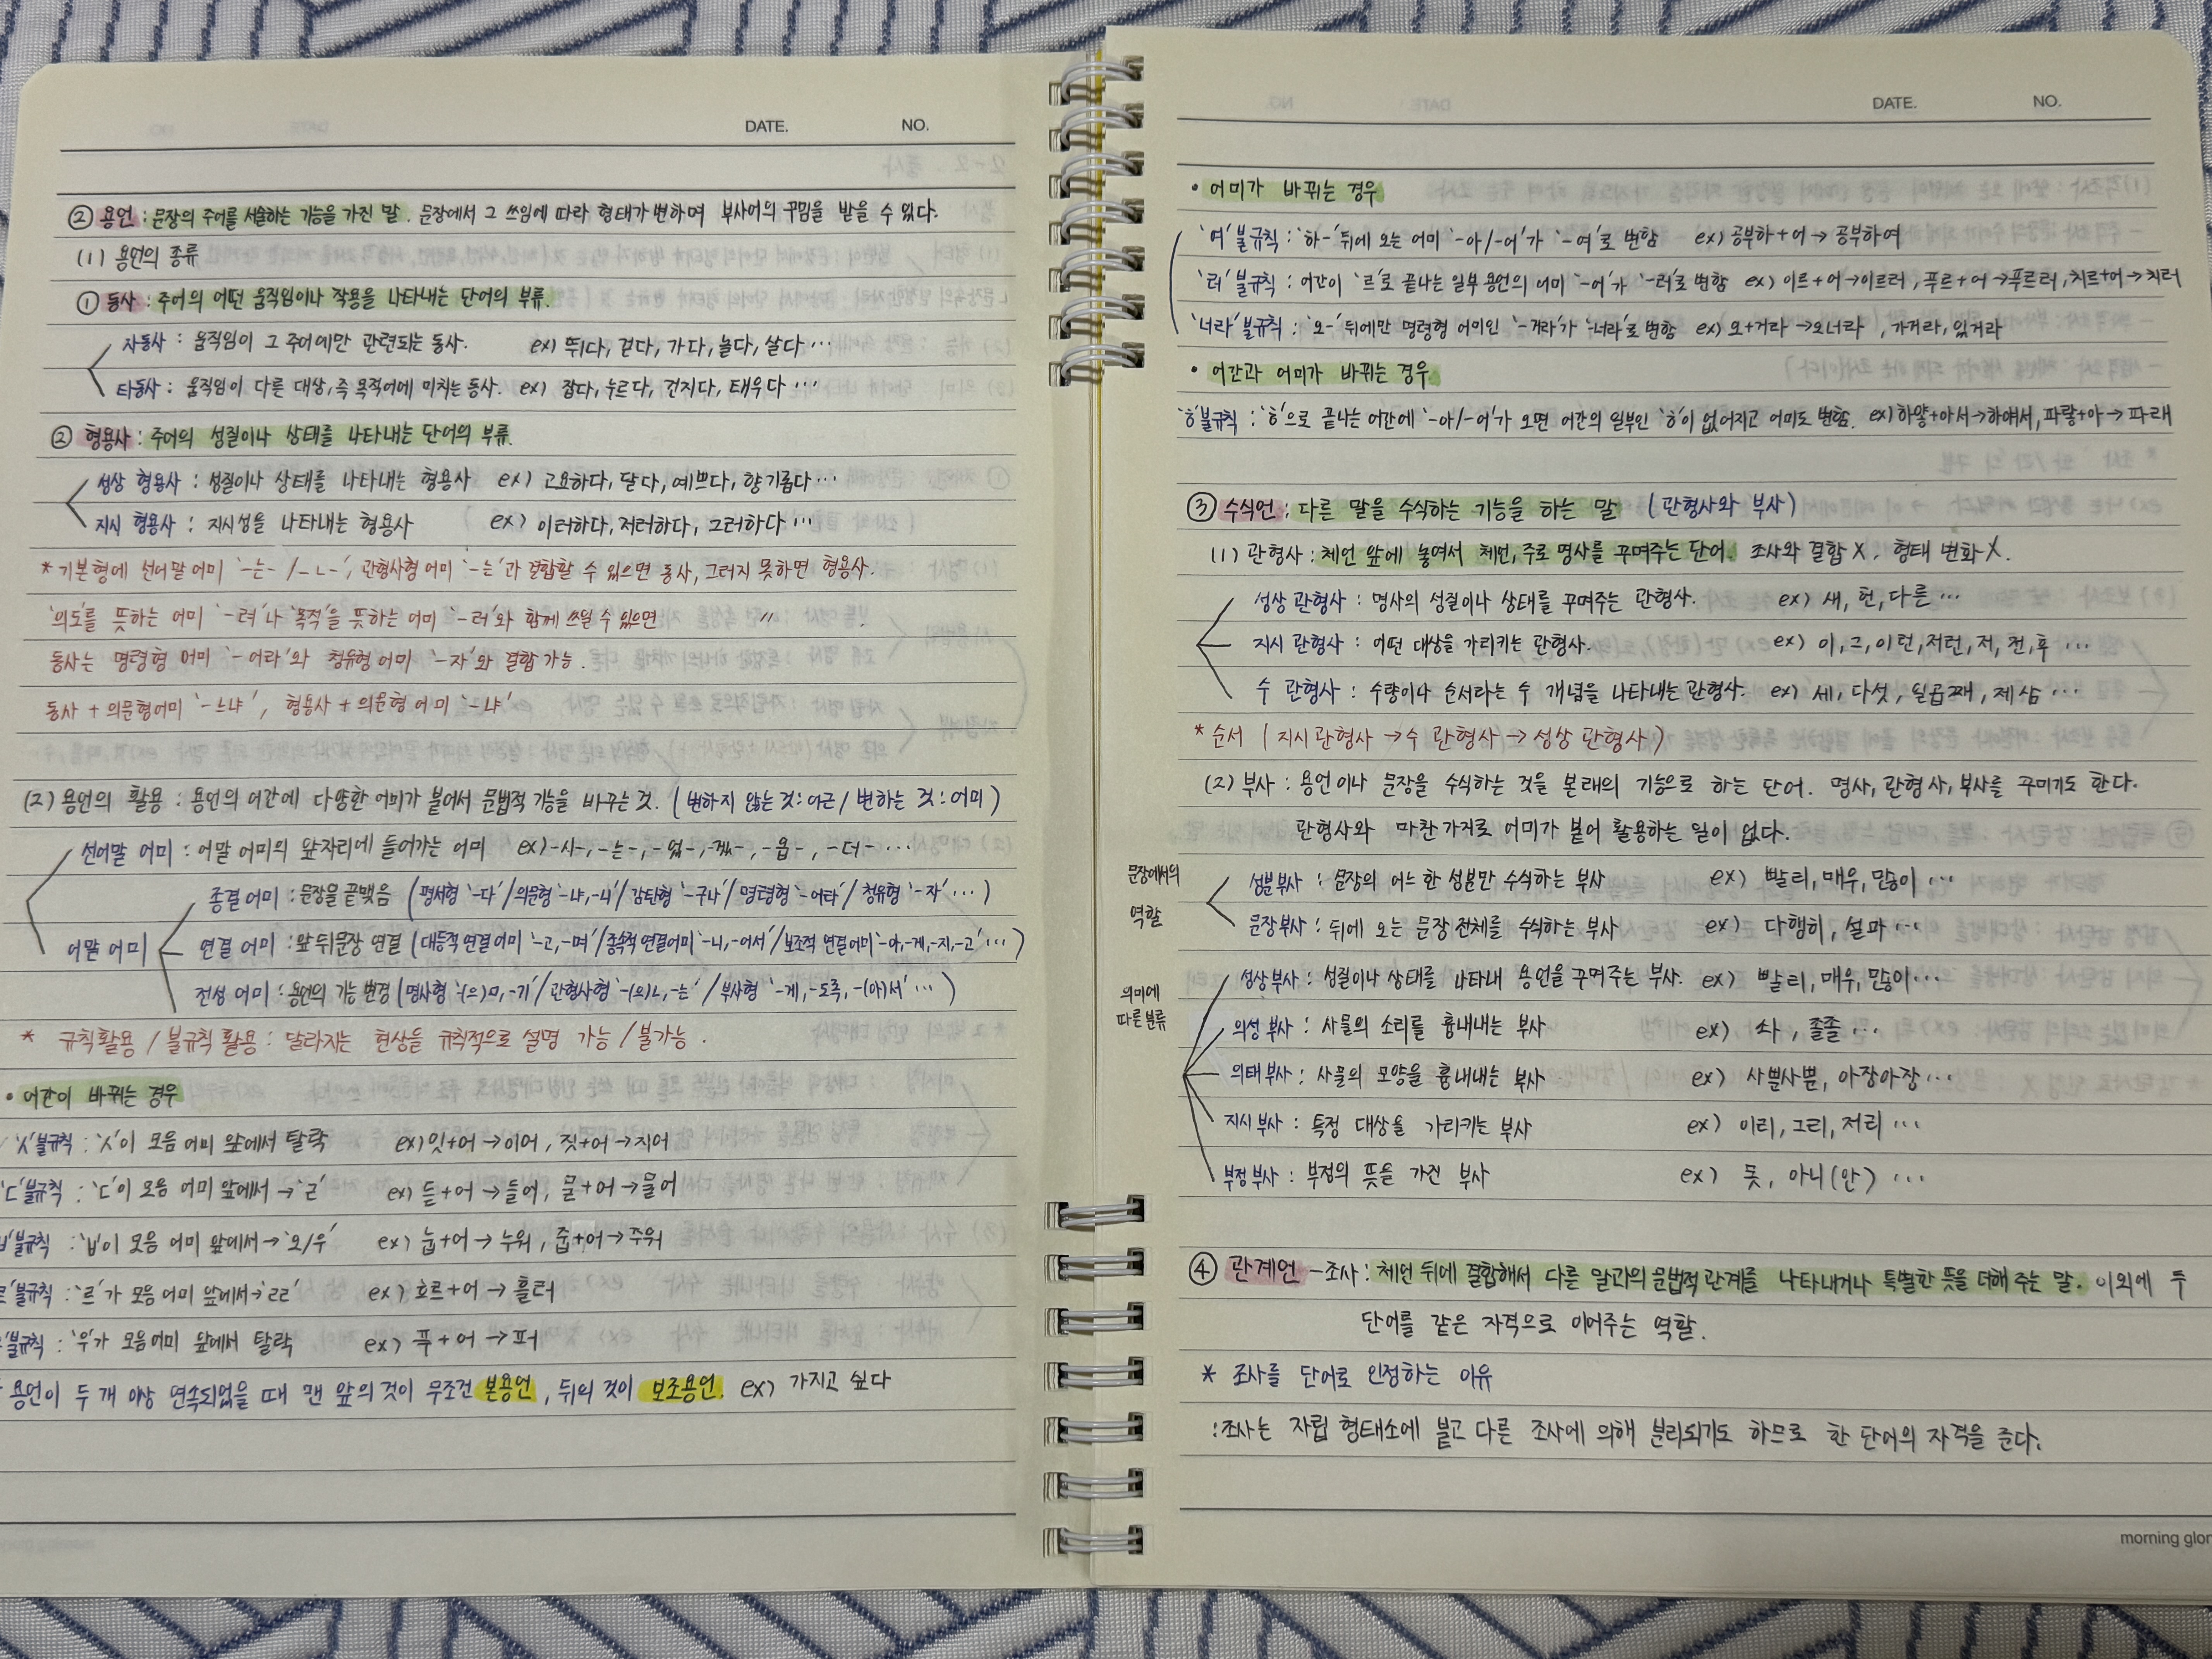 DATE. NO.
② 용언 : 문장의 주어를 서술하는 기능을 가진 말. 문장에서 그 쓰임에 따라 형태가 변하며 부사어의 꾸밈을 받을 수 있다.
(1) 용언의 종류
① 동사 : 주어의 어떤 움직임이나 작용을 나타내는 단어의 부류.
자동사 : 움직임이 그 주어에만 관련되는 동사. ex) 뛰다, 걷다, 가다, 놀다, 살다 …
타동사 : 움직임이 다른 대상, 즉 목적어에 미치는 동사. ex) 잡다, 누르다, 건지다, 태우다 …
② 형용사 : 주어의 성질이나 상태를 나타내는 단어의 부류.
성상 형용사 : 성질이나 상태를 나타내는 형용사 ex) 고요하다, 달다, 예쁘다, 향기롭다 …
지시 형용사 : 지시성을 나타내는 형용사 ex) 이러하다, 저러하다, 그러하다 …
* 기본형에 선어말 어미 '-는- / -ㄴ-', 관형사형 어미 '-는'과 결합할 수 있으면 동사, 그러지 못하면 형용사.
'의도'를 뜻하는 어미 '-려'나 '목적'을 뜻하는 어미 '-러'와 함께 쓰일 수 있으면 〃 .
동사는 명령형 어미 '-어라'와 청유형 어미 '-자'와 결합 가능.
동사 + 의문형어미 '-느냐', 형용사 + 의문형 어미 '-냐'
(2) 용언의 활용 : 용언의 어간에 다양한 어미가 붙어서 문법적 기능을 바꾸는 것. (변하지 않는 것 : 어근 / 변하는 것 : 어미)
선어말 어미 : 어말 어미의 앞자리에 들어가는 어미 ex) -시-, -는-, -었-, -겠-, -옵-, -더- …
종결 어미 : 문장을 끝맺음 (평서형 '-다' / 의문형 '-냐, -니' / 감탄형 '-구나' / 명령형 '-어라' / 청유형 '-자' …)
어말 어미
연결 어미 : 앞 뒤 문장 연결 (대등적 연결어미 '-고, -며' / 종속적 연결어미 '-니, -어서' / 보조적 연결어미 '-아, -게, -지, -고' …)
전성 어미 : 용언의 기능 변경 (명사형 '-(으)ㅁ, -기' / 관형사형 '-(으)ㄴ, -는' / 부사형 '-게, -도록, -(아)서' …)
* 규칙활용 / 불규칙 활용 : 달라지는 현상을 규칙적으로 설명 가능 / 불가능.
• 어간이 바뀌는 경우
'ㅅ'불규칙 : 'ㅅ'이 모음 어미 앞에서 탈락 ex) 잇+어 → 이어, 짓+어 → 지어
'ㄷ'불규칙 : 'ㄷ'이 모음 어미 앞에서 → 'ㄹ' ex) 듣+어 → 들어, 묻+어 → 물어
'ㅂ'불규칙 : 'ㅂ'이 모음 어미 앞에서 → '오/우' ex) 눕+어 → 누워, 줍+어 → 주워
불규칙 : '르'가 모음 어미 앞에서 → 'ㄹㄹ' ex) 흐르+어 → 흘러
불규칙 : '우'가 모음어미 앞에서 탈락 ex) 푸+어 → 퍼
용언이 두 개 이상 연속되었을 때 맨 앞의 것이 무조건 본용언, 뒤의 것이 보조용언. ex) 가지고 싶다
DATE. NO.
• 어미가 바뀌는 경우
'여'불규칙 : '하-' 뒤에 오는 어미 '-아/-어'가 '-여'로 변함 ex) 공부하+어 → 공부하여
'러'불규칙 : 어간이 '르'로 끝나는 일부 용언의 어미 '-어'가 '-러'로 변함 ex) 이르+어 → 이르러, 푸르+어 → 푸르러, 치르+어 → 치러
'너라'불규칙 : '오-' 뒤에만 명령형 어미인 '-거라'가 '-너라'로 변함 ex) 오+거라 → 오너라, 가거라, 있거라
• 어간과 어미가 바뀌는 경우
'ㅎ'불규칙 : 'ㅎ'으로 끝나는 어간에 '-아/-어'가 오면 어간의 일부인 'ㅎ'이 없어지고 어미도 변함. ex) 하얗+아서 → 하얘서, 파랗+아 → 파래
③ 수식언 : 다른 말을 수식하는 기능을 하는 말 (관형사와 부사)
(1) 관형사 : 체언 앞에 놓여서 체언, 주로 명사를 꾸며주는 단어. 조사와 결합 X, 형태 변화 X.
성상 관형사 : 명사의 성질이나 상태를 꾸며주는 관형사. ex) 새, 헌, 다른 …
지시 관형사 : 어떤 대상을 가리키는 관형사. ex) 이, 그, 이런, 저런, 저, 전, 후 …
수 관형사 : 수량이나 순서라는 수 개념을 나타내는 관형사. ex) 세, 다섯, 일곱째, 제삼 …
* 순서 (지시 관형사 → 수 관형사 → 성상 관형사)
(2) 부사 : 용언이나 문장을 수식하는 것을 본래의 기능으로 하는 단어. 명사, 관형사, 부사를 꾸미기도 한다.
관형사와 마찬가지로 어미가 붙어 활용하는 일이 없다.
문장에서의
역할
성분부사 : 문장의 어느 한 성분만 수식하는 부사 ex) 빨리, 매우, 많이 …
문장부사 : 뒤에 오는 문장 전체를 수식하는 부사 ex) 다행히, 설마 …
의미에
따른 분류
성상부사 : 성질이나 상태를 나타내 용언을 꾸며주는 부사. ex) 빨리, 매우, 많이 …
의성 부사 : 사물의 소리를 흉내내는 부사 ex) 솨, 졸졸 …
의태부사 : 사물의 모양을 흉내내는 부사 ex) 사뿐사뿐, 아장아장 …
지시부사 : 특정 대상을 가리키는 부사 ex) 이리, 그리, 저리 …
부정부사 : 부정의 뜻을 가진 부사 ex) 못, 아니(안) …
④ 관계언 - 조사 : 체언 뒤에 결합해서 다른 말과의 문법적 관계를 나타내거나 특별한 뜻을 더해 주는 말. 이외에 두
단어를 같은 자격으로 이어주는 역할.
* 조사를 단어로 인정하는 이유
: 조사는 자립 형태소에 붙고 다른 조사에 의해 분리되기도 하므로 한 단어의 자격을 준다.
morning glor